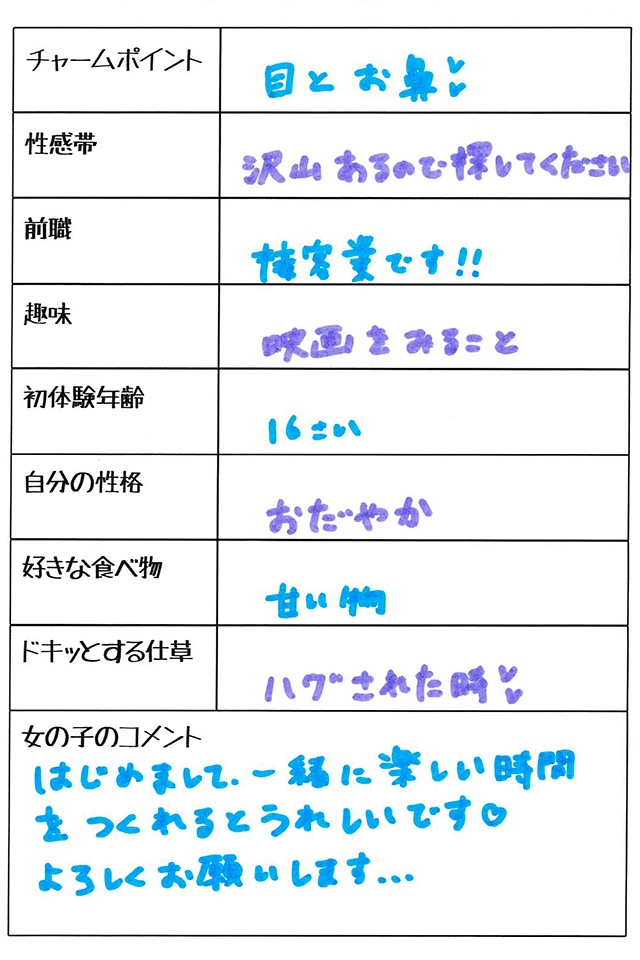 チャームポイント
目とお鼻♡♡
性感帯
沢山あるので探してください
前職
接客業です!!
趣味
映画をみること
初体験年齢
16さい
自分の性格
おだやか
好きな食べ物
甘い物
ドキッとする仕草
ハグされた時♡♡
女の子のコメント
はじめまして.一緒に楽しい時間
をつくれるとうれしいです♡
よろしくお願いします...